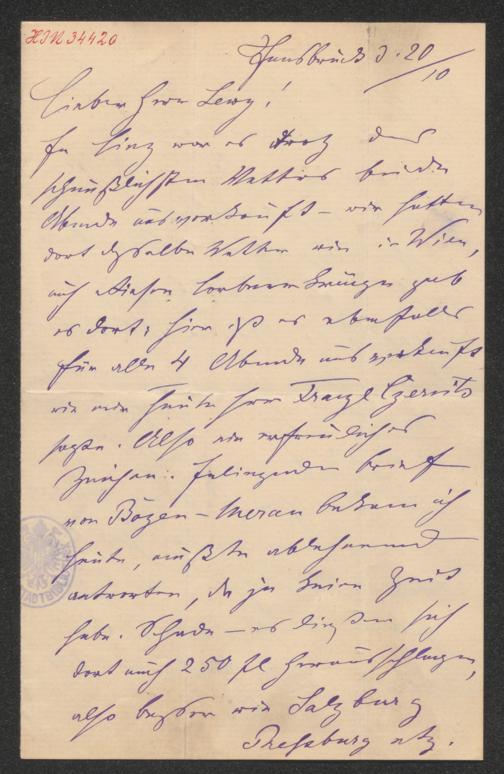 HIN 34420
Innsbruck d. 20/10
Lieber Herr Lewy!
In Linz war es trotz des
scheußlichsten Wetters beide
Abende ausverkauft – wir hatten
dort dasselbe Wetter wie in Wien,
auch Lorbeerkränze gab
es dort; hier ist es ebenfalls
für alle 4 Abende ausverkauft
wie mir heute Herr Czernits
sagte. Also ein erfreuliches
Zeichen. Inliegenden Brief
von Bozen–Meran bekam ich
heute, mußte ablehnend
antworten, da ja keine Zeit
habe. Schade – es ließen sich
dort auch 250 fl herausschlagen,
also besser wie Salzburg
Pressburg etz.